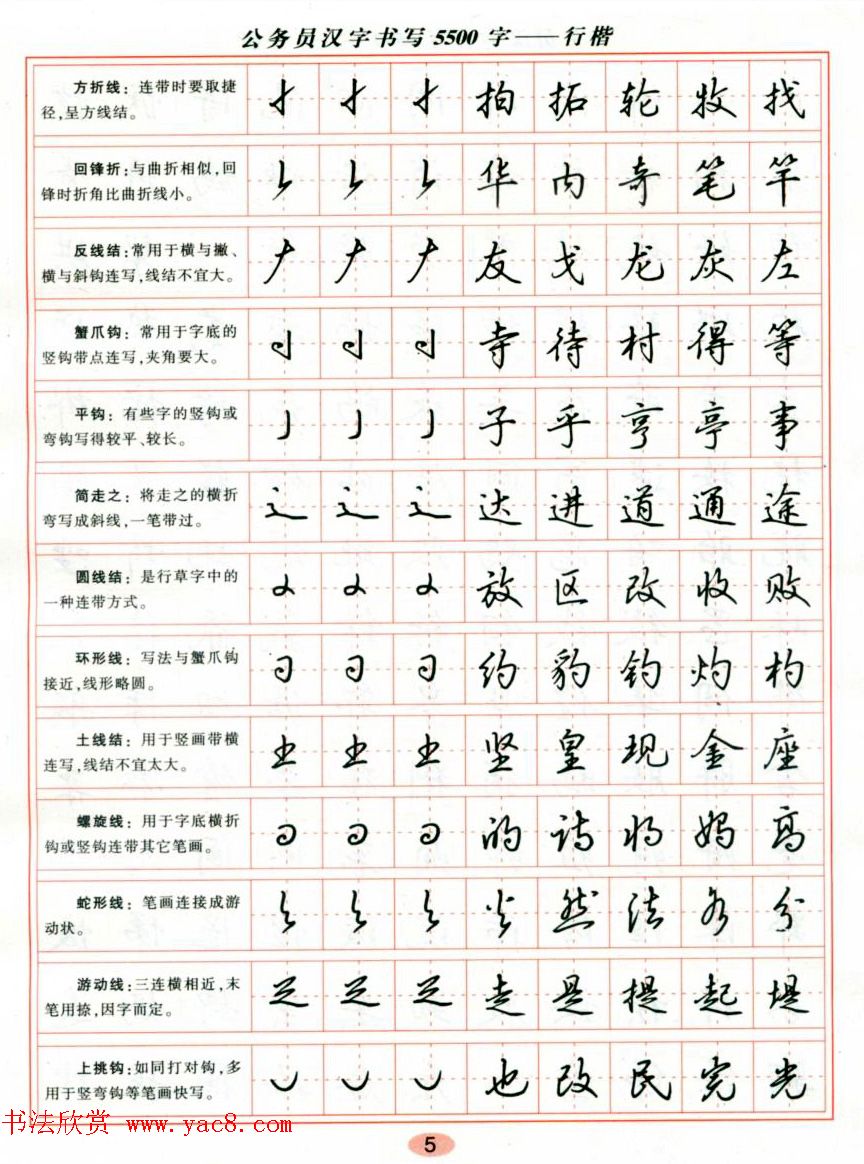 公务员汉字书写 5500 字——行楷
方折线：连带时要取捷
径,呈方线结。
拍 拓 轮 牧 找
回锋折：与曲折相似,回
锋时折角比曲折线小。
华 内 奇 笔 竿
反线结：常用于横与撇、
横与斜钩连写,线结不宜大。
友 戈 龙 灰 左
蟹爪钩：常用于字底的
竖钩带点连写,夹角要大。
寺 待 村 得 等
平钩：有些字的竖钩或
弯钩写得较平、较长。
子 乎 亨 亭 事
简走之：将走之的横折
弯写成斜线,一笔带过。
达 进 道 通 途
圆线结：是行草字中的
一种连带方式。
放 区 改 收 败
环形线：写法与蟹爪钩
接近,线形略圆。
约 豹 钓 灼 杓
土线结：用于竖画带横
连写,线结不宜太大。
坚 皇 现 金 座
螺旋线：用于字底横折
钩或竖钩连带其它笔画。
的 诗 将 妈 高
蛇形线：笔画连接成游
动状。
然 法 分
游动线：三连横相近,末
笔用捺,因字而定。
走 是 提 起 堤
上挑钩：如同打对钩,多
用于竖弯钩等笔画快写。
也 改 民 完 光
书法欣赏 www.yac8.com
5